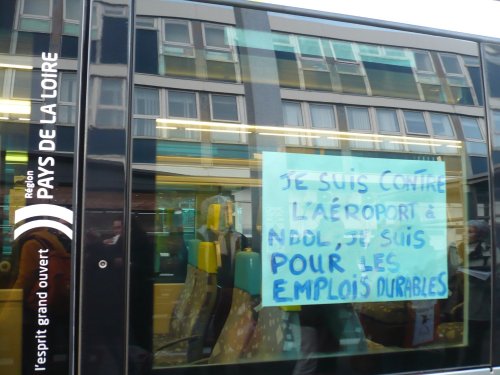 Région
PAYS DE LA LOIRE
l'esprit grand ouvert
JE SUIS CONTRE
L'AÉROPORT à
NDDL, JE SUIS
POUR LES
EMPLOIS DURABLES